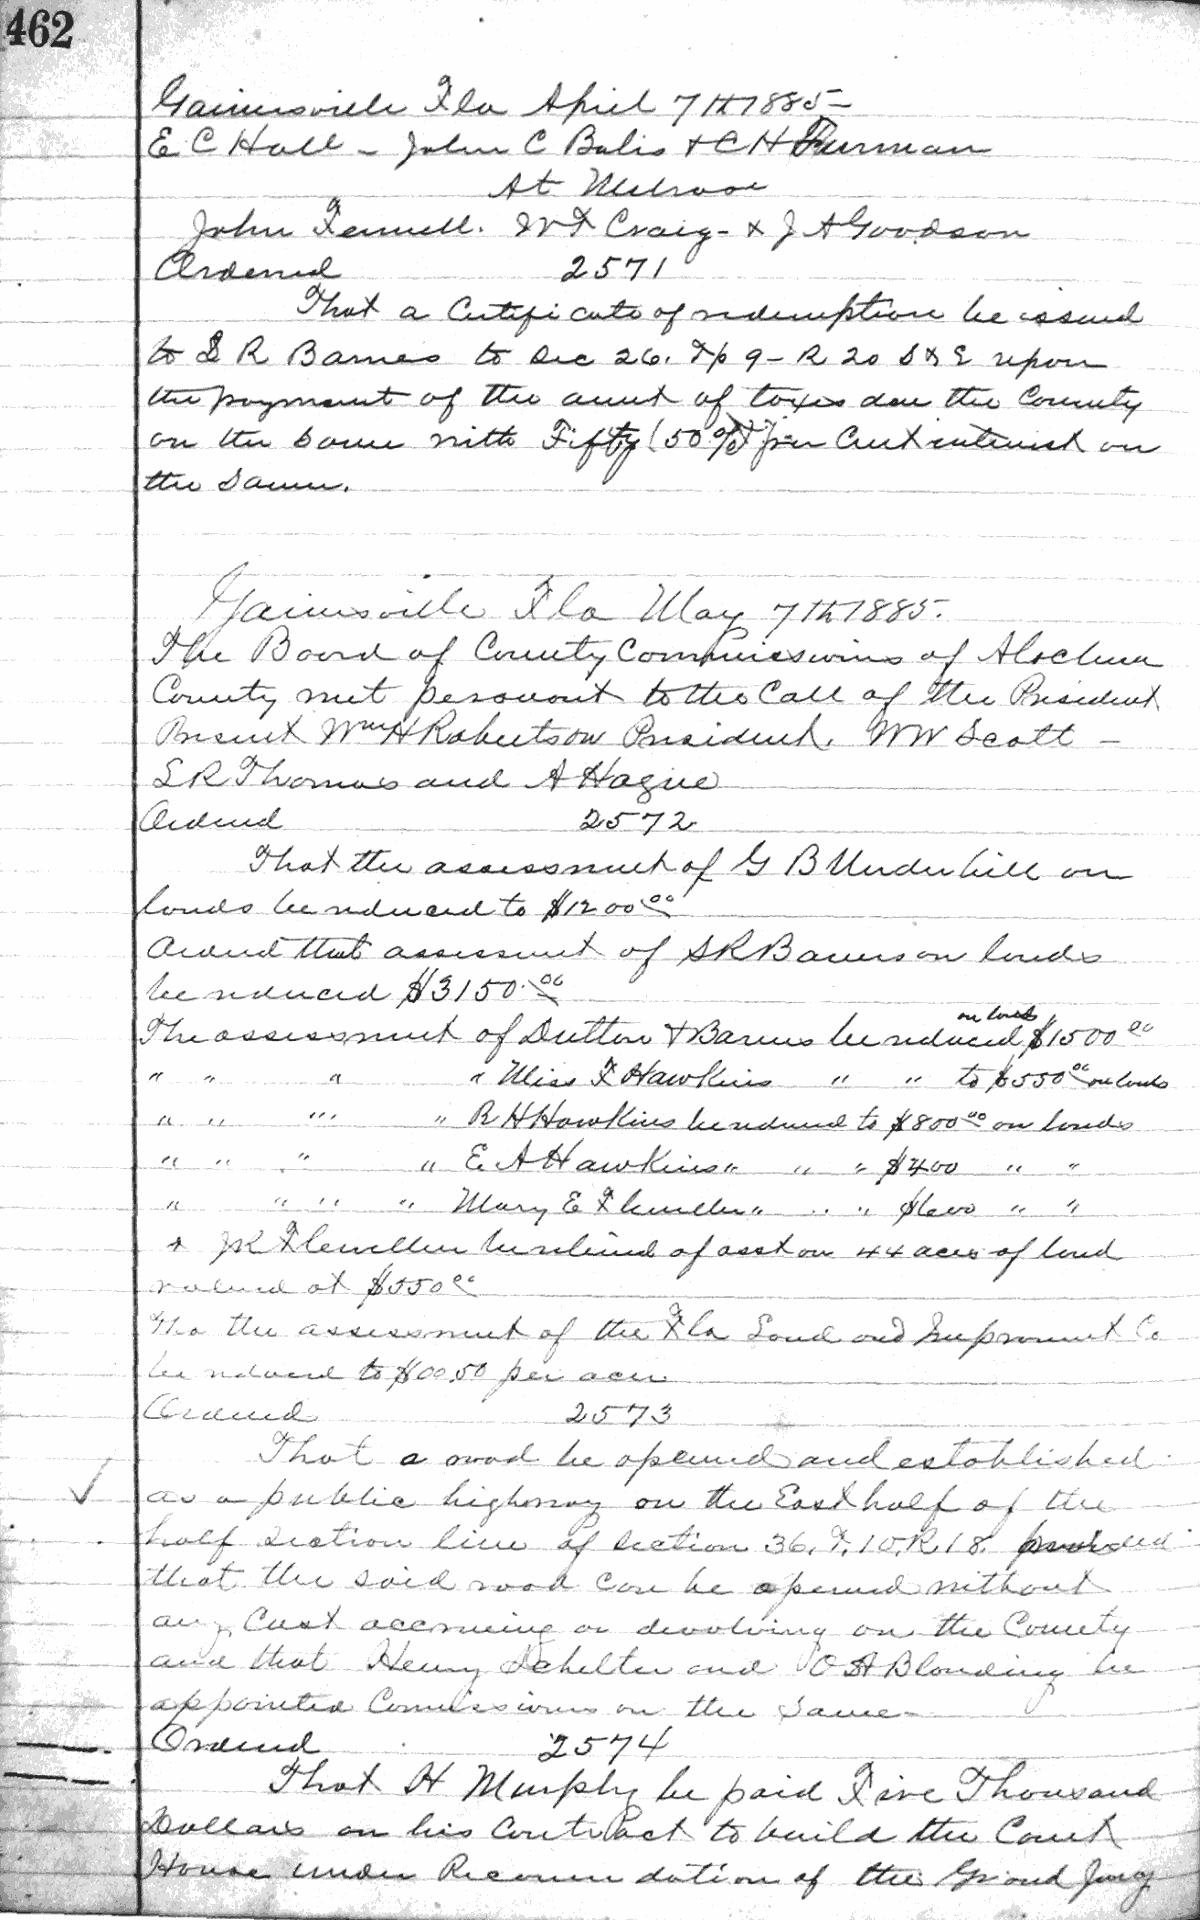 462
Gainesville Fla April 7th 1885—
E C Hall – John C Balis + C H Furman
At Melrose
John Fennell. W F Craig – & J A Goodson
Ordered 2571
That a Certificate of redemption be issued
to S R Barnes to Sec 26. Tp 9 – R 20 S & E upon
the payment of the amt of taxes due the County
on the same with Fifty (50%) per Cent interest on
the same.
Gainesville Fla May 7th 1885.
The Board of County Commissioners of Alachua
County met persuant to the Call of the President
Present Wm H Robertson President. W W Scott –
S R Thomas and A Hague
Ordered 2572
That the assessment of G B Underhill on
lands be reduced to $1200.00
Ordered that assessment of S R Barnes on lands
be reduced $3150.00
on lands
The assessment of Dutton & Barnes be reduced $1500 00
" " " " Miss F Hawkins " " to $550 00 on lands
" " " " R H Hawkins be reduced to $800 00 on lands
" " " " E A Hawkins " " " $400 " "
" " " " Mary E Flewellen " " " $600 " "
+ J K Flewellen be relieved of asst on 44 acres of land
valued at $550 00
the assessment of the Fla Land and Improvment Co
be reduced to $00.50 per acre
Ordered 2573
That a road be opened and established
as a public highway on the East half of the
half section line of section 36. T. 10. R. 18. provided
that the said road can be opened without
any Cost accrueing or devolving on the County
and that Henry Schelter and O A Blonding be
appointed Comissioners on the same –
Ordered 2574
That H Murphy be paid Five Thousand
Dollars on his Contract to build the Court
House under Recommendation of the Grand Jury